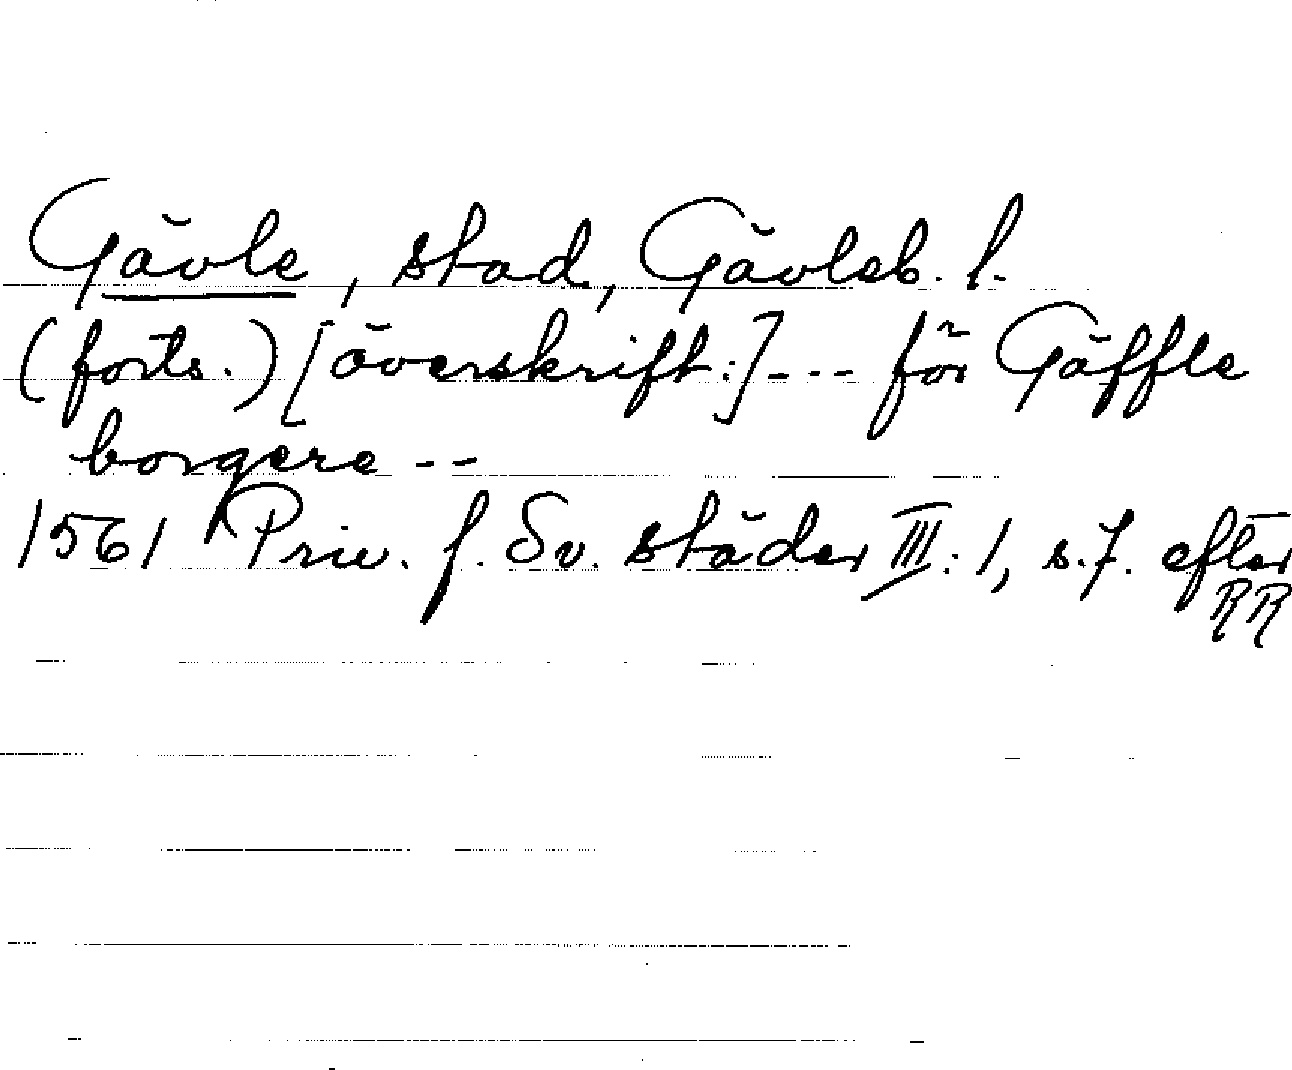 Gävle, stad, Gävleb. l.
(forts.) [överskrift:] --- för Gäffle
borgere --
1561 Priv. f. Sv. städer III: 1, s. 7. efter
RR